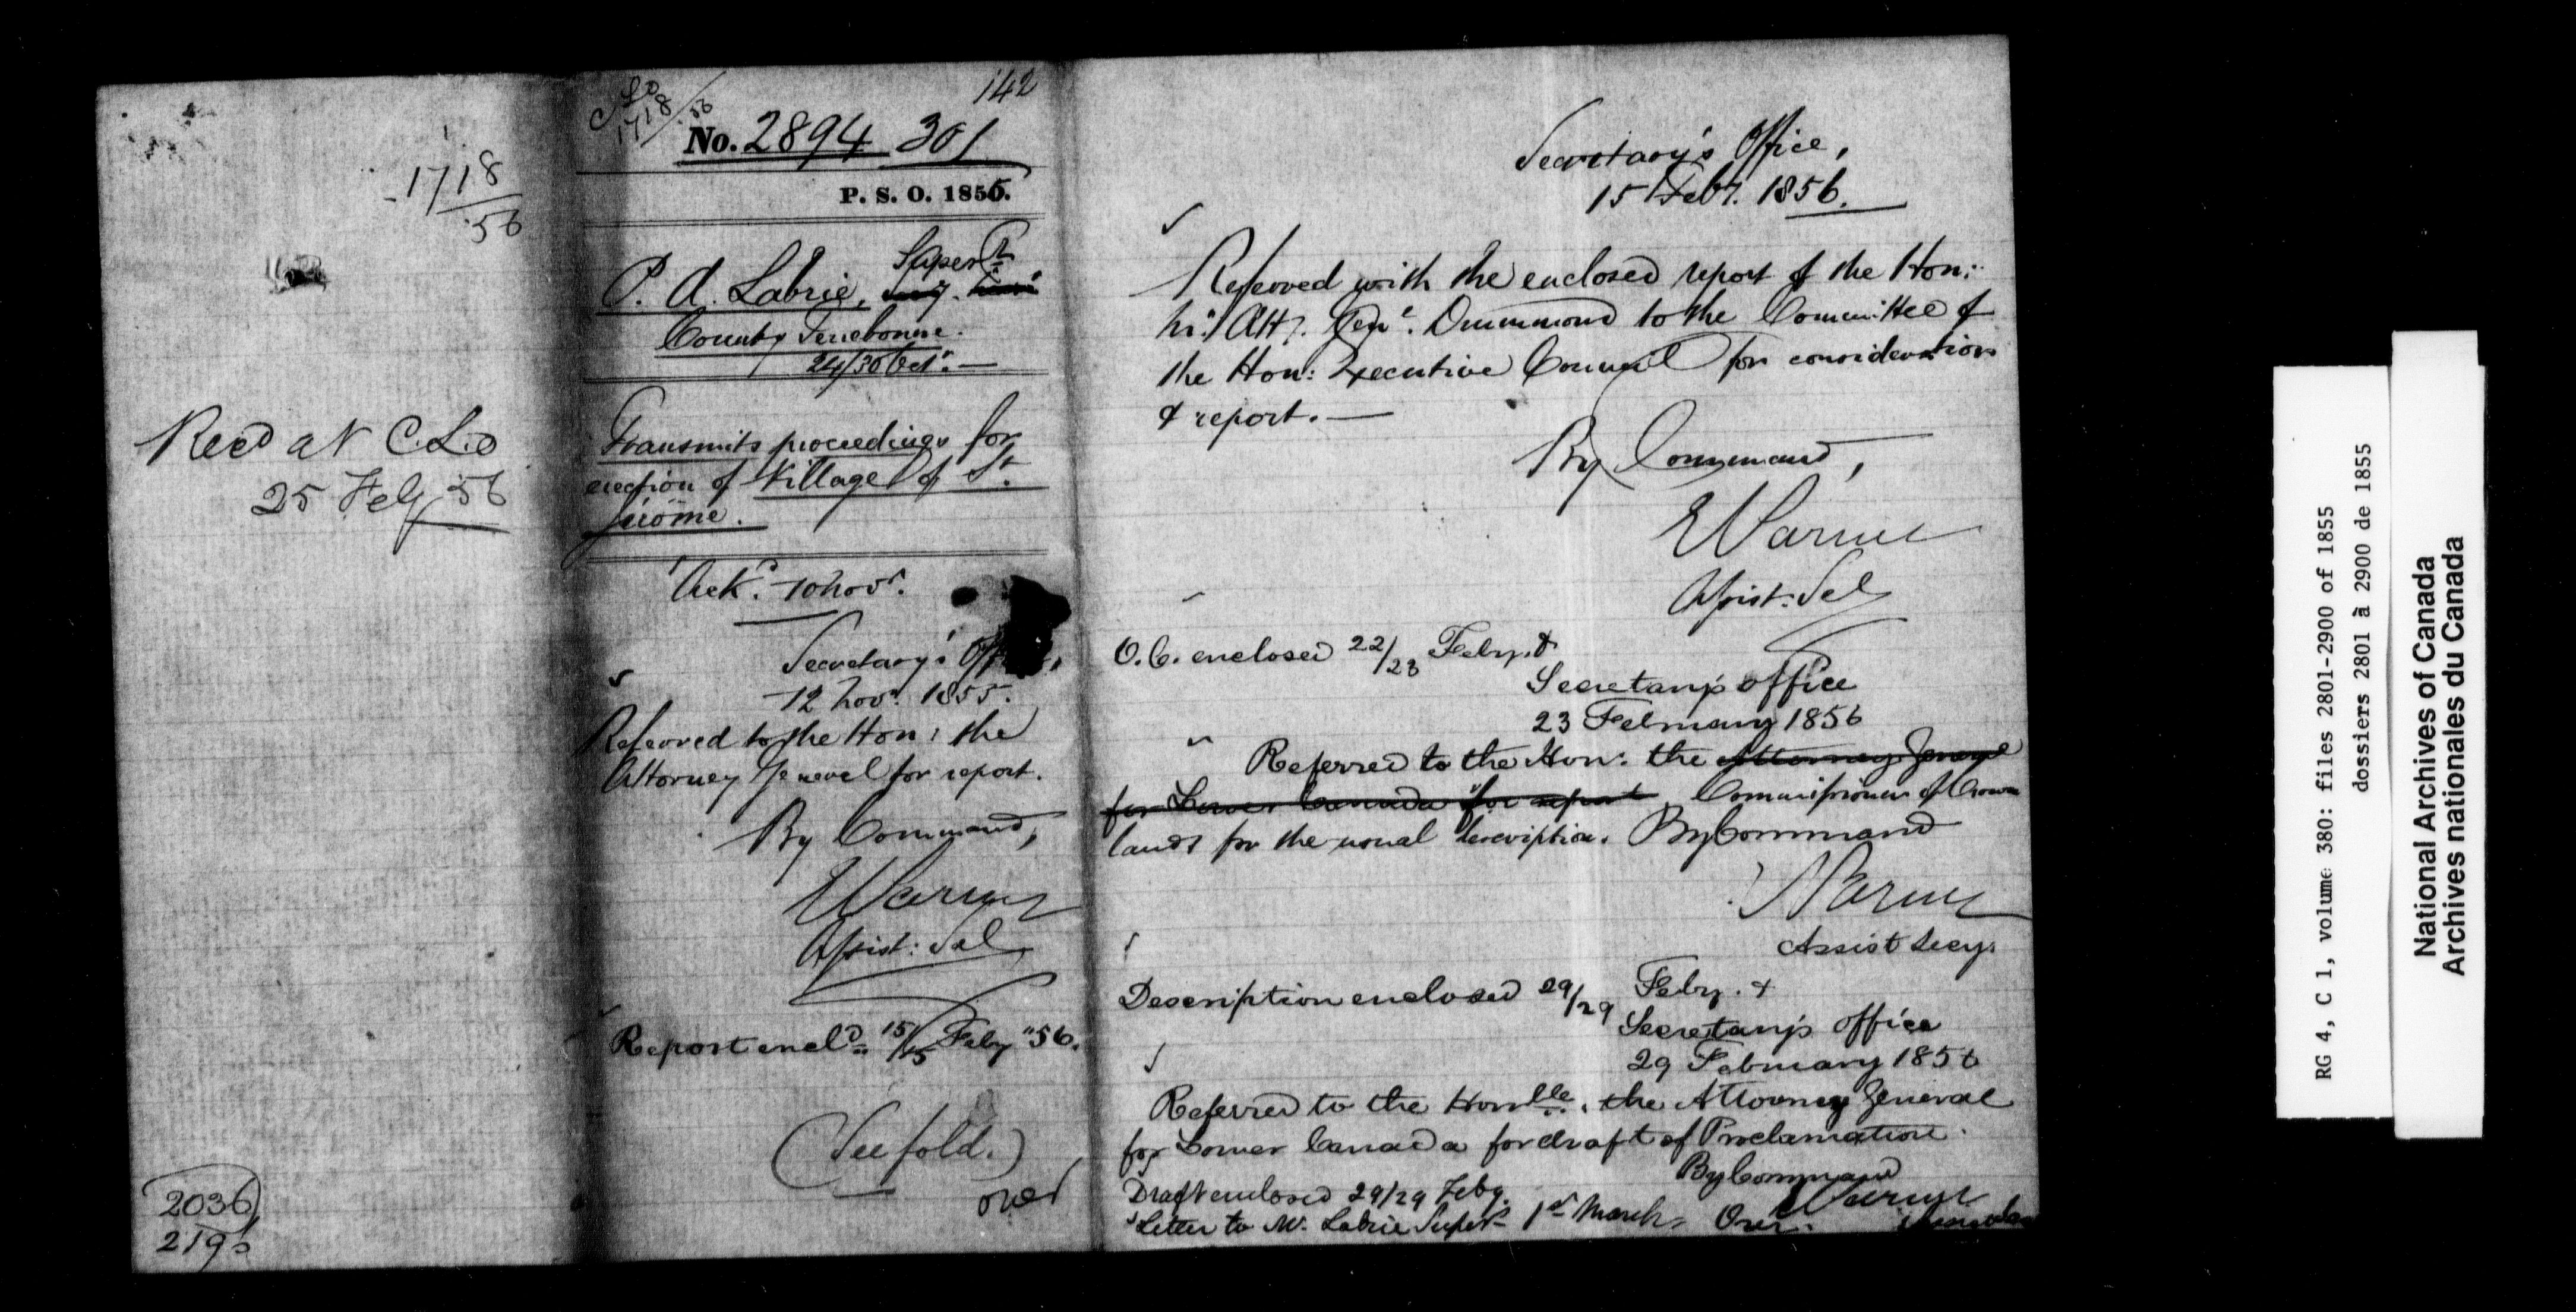 1718
56
Recd at C.L.O
25 Feby 56
2036
219
C L O
1718/56
142
No. 2894 301
P. S. O. 1855.
P. A. Labrie, Supert
County Terrebonne.
24/30 Octr.
Transmits proceedings for
erection of Village of St.
Jérôme.
Ackd. 10 Novr.
Secretary's Office,
12 Novr. 1855.
Referred to the Hon: the
Attorney General for report.
By Command,
Assist: Sec
Report encld. 15/15 Feby "56.
(See fold.)
over
Secretary's Office,
15 Feby. 1856.
Referred with the enclosed report of the Hon:
Mr. Atty. Genl. Drummond to the Committee of
the Hon: Executive Council for consideration
& report.—
By Command,
Assist: Sec
O.C. enclosed 22/23 Feby. &
Secretary's office
23 February 1856
Referred to the Hon: the Attorney General
for Lower Canada for report Commissioner of Crown
lands for the usual description. By Command
Assist Secy.
Description enclosed 29/29 Feby. &
Secretary's office
29 February 1856
Referred to the Honble. the Attorney General
for Lower Canada for draft of Proclamation.
By Command
Draft enclosed 29/29 Feby.
Letter to Mr. Labrie Supert 1st March. Over.
RG 4, C 1, volume 380: files 2801-2900 of 1855
dossiers 2801 à 2900 de 1855
National Archives of Canada
Archives nationales du Canada